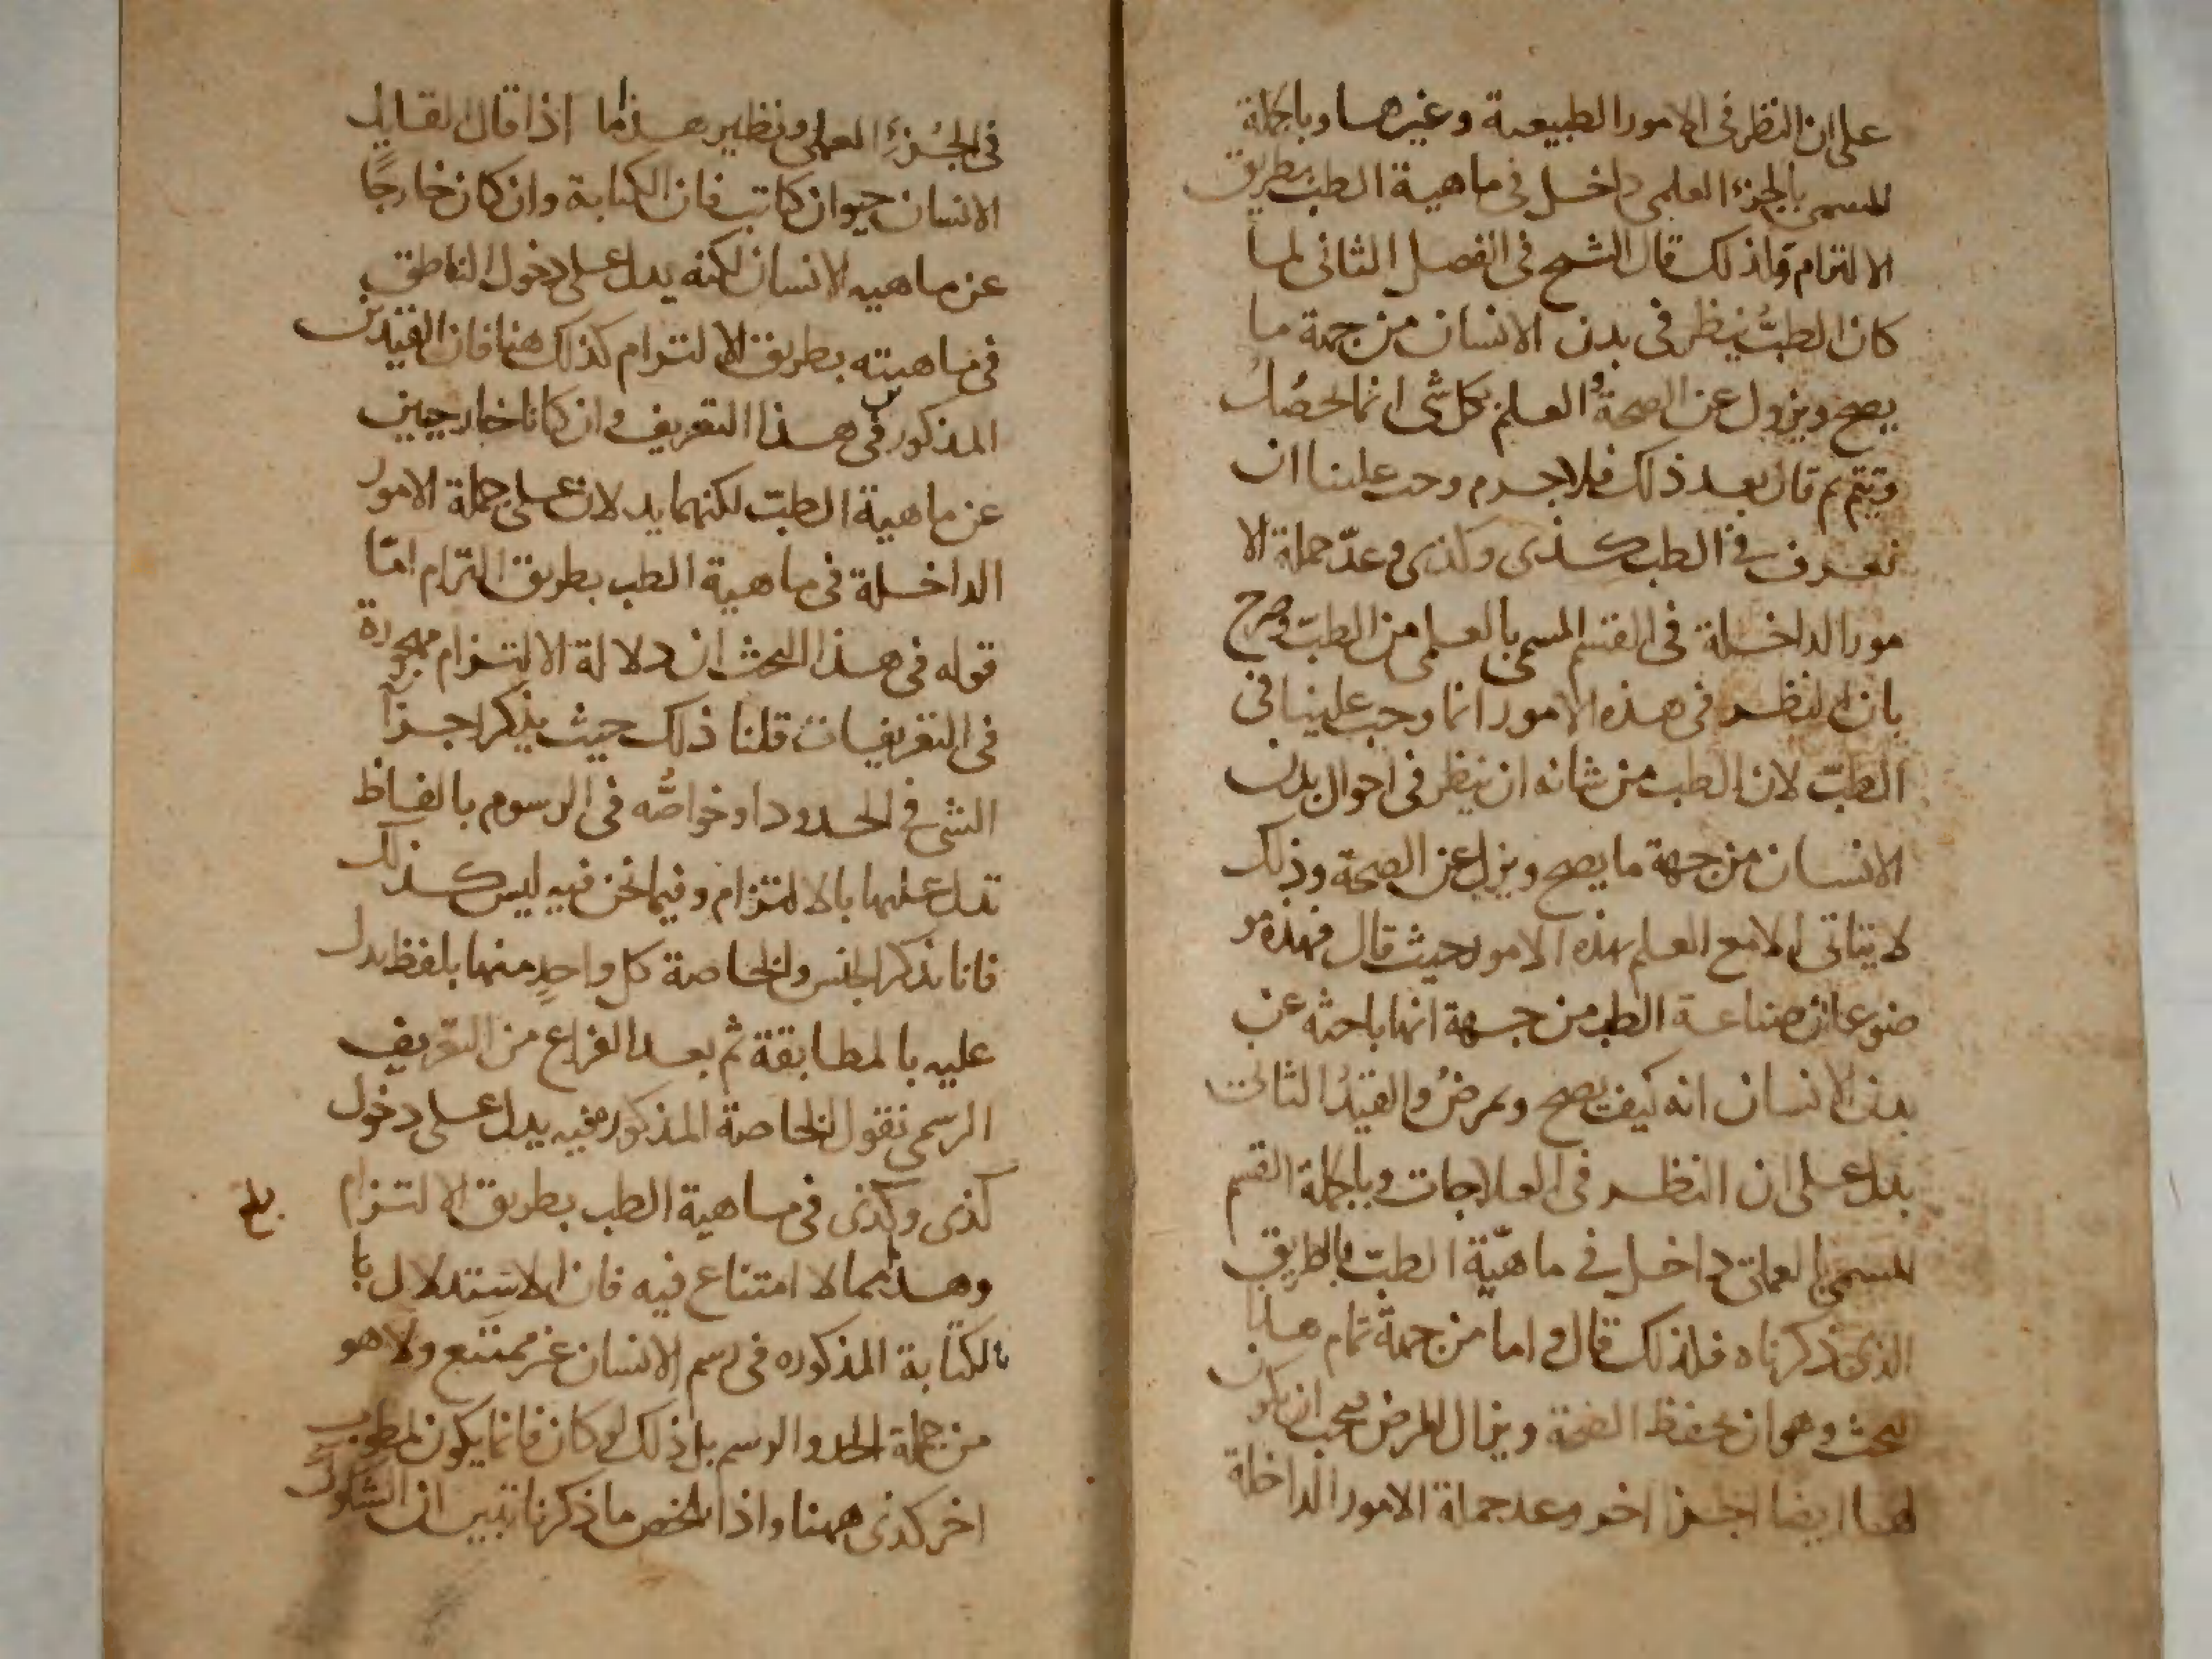 على ان النظر فى الامور الطبيعية وغيرها وبالجملة
المسمى بالجزء العلمى داخل فى ماهية الطب بطريق
الالتزام ولذلك قال الشيخ فى الفصل الثانى لما
كان الطبُّ ينظر فى بدن الانسان من جهة ما
يصح ويزول عن الصحة والعلم بكل شى انما يحصُل
ويتم ثم قال بعد ذلك فلا جرم وجب علينا ان
نعرف فى الطب كذى وكذى وعدّ جملة الا
مور الداخلة فى القسم المسمى بالعلمى من الطبّ وصرح
بان النظر فى هذه الامور انما وجب علينا فى
الطبّ لان الطب من شانه ان ينظر فى احوال بدن
الانسان من جهة ما يصح ويزول عن الصحة وذلك
لا يتاتى الا مع العلم بهذه الامور حيث قال فهذه مو
ضوعات صناعة الطب من جهة انها باحثه عن
بدن الانسان انه كيف يصح ويمرضُ والقيدُ الثالث
يدل على ان النظر فى العلاجات وبالجملة القسم
المسمى بالعملى داخل فى ماهيّة الطبّ بالطريق
الذى ذكرناه فلذلك قال واما من جهة تمام هذا
البحث وهو ان يحفظ الصحة ويزال المرض فيجب ان يكون
لهما ايضا اجزا اخر وعد جملة الامور الداخلة
فى الجُزءِ العملى ونظير هذا ما اذا قال القايل
الانسان حيوان كاتب فان الكتابة وان كان خارجًا
عن ماهيه الانسان لكنه يدل على دخول الناطق
فى ماهيته بطريق الالتزام كذلك هنا فان القيدين
المذكورين فى هذا التعريف وان كانا خارجيين
عن ماهية الطبّ لكنهما يدلان على جملة الامور
الداخلة فى ماهية الطب بطريق التزام امّا
قوله فى هذا البحث ان دلالة الالتزام مهجورة
فى التعريفات قلنا ذلك حيث يذكر اجزآ
الشى فى الحدود او خواصُّه فى الرسوم بالفاظ
تدل عليها بالالتزام وفيما نحن فيه ليس كذلك
فانا نذكر الجنس والخاصة كل واحدٍ منهما بلفظ يدل
عليه بالمطابقة ثم بعد الفراغ من التعريف
الرسمى نقول الخاصة المذكورة فيه يدل على دخول
كذى وكذى فى ماهية الطب بطريق الالتزام
وهذا مما لا امتناع فيه فان الاستدلال با
بالكتابة المذكوره فى رسم الانسان غير ممتنع ولا هو
من جملة الحد والرسم بل ذلك لو كان فانما يكون لمطلوب
اخر كذى ههنا واذا تلخص ما ذكرنا تبين ان الشكوك